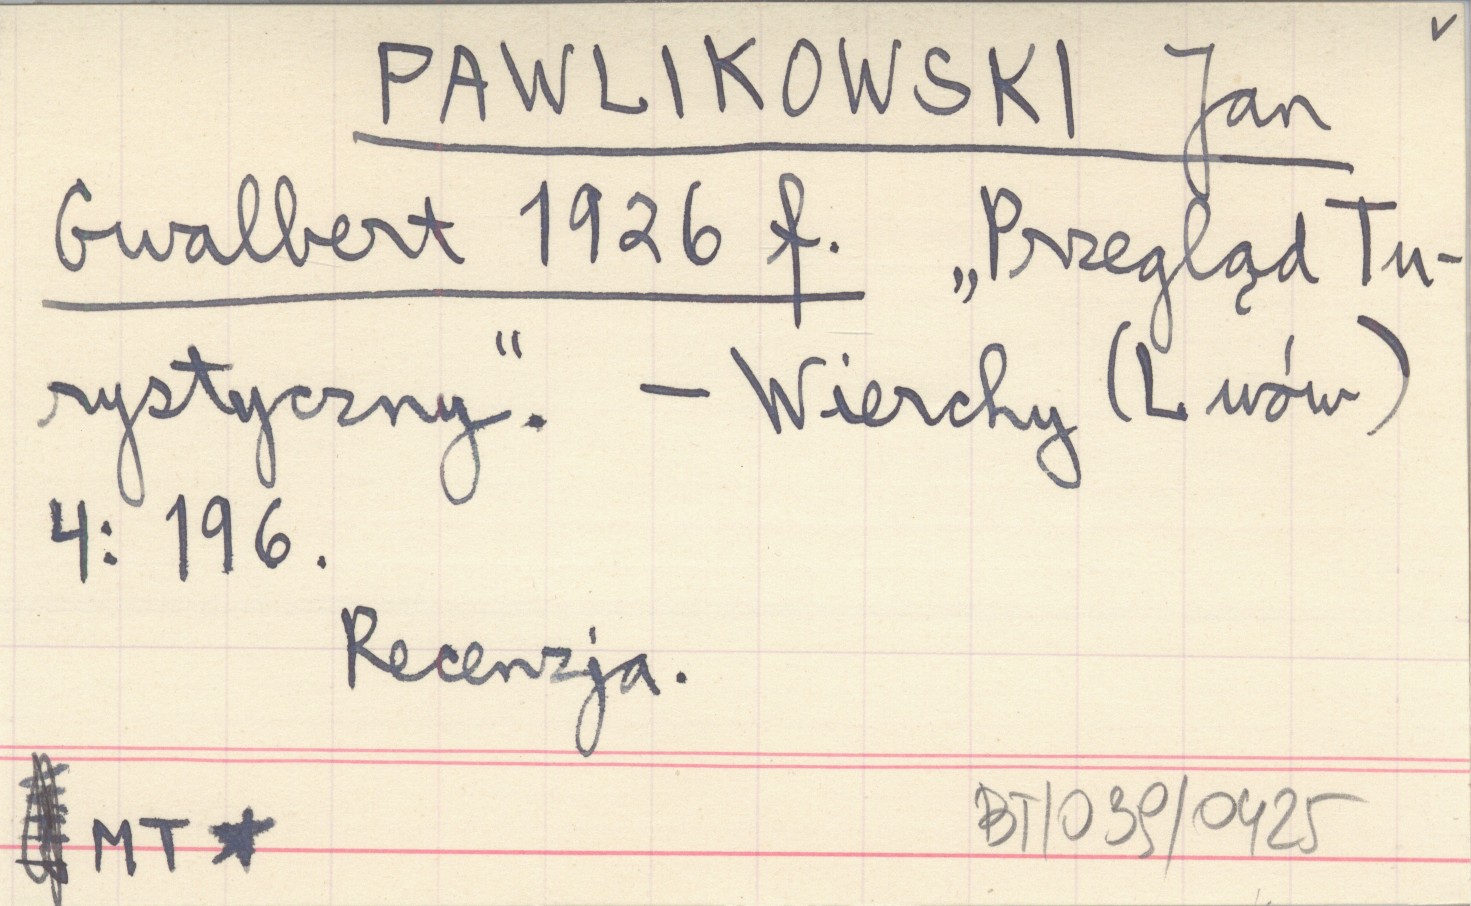 v
PAWLIKOWSKI Jan
Gwalbert 1926 f. „Przegląd Tu-
rystyczny“. — Wierchy (Lwów)
4: 196.
Recenzja.
MT ★
BT/039/0425